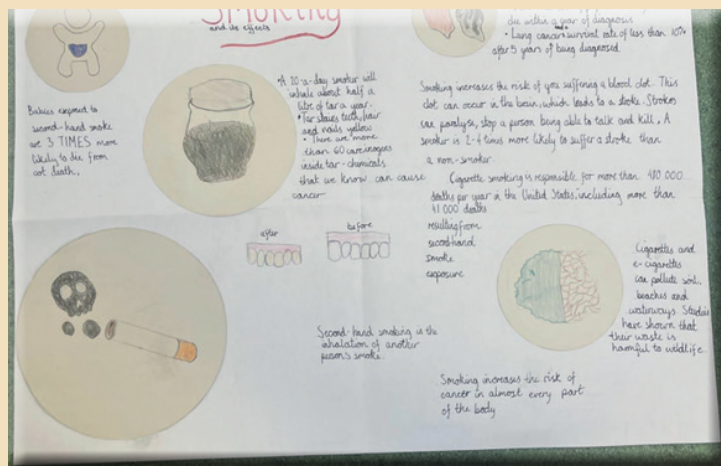 Smoking
and its effects
die within a year of diagnosis
• Lung cancer survival rate of less than 10%
after 5 years of being diagnosed
Babies exposed to
second-hand smoke
are 3 TIME more
likely to die from
cot death.
• A 20-a-day smoker will
inhale about half a
litre of tar a year.
• Tar staves teeth, hair
and nails yellow
• There are more
than 60 carcinogens
inside tar - chemicals
that we know can cause
cancer
Smoking increases the risk of you suffering a blood clot. This
clot can occur in the brain, which leads to a stroke. Strokes
can paralyse, stop a person being able to talk and kill. A
smoker is 2-4 times more likely to suffer a stroke than
a non-smoker.
Cigarette smoking is responsible for more than 480 000
deaths per year in the United States, including more than
41 000 deaths
resulting from
secondhand
smoke
exposure
after
before
Cigarettes and
e-cigarettes
can pollute soil,
beaches and
waterways. Studies
have shown that
their waste is
harmful to wildlife.
Second-hand smoking is the
inhalation of another
persons smoke.
Smoking increases the risk of
cancer in almost every part
of the body